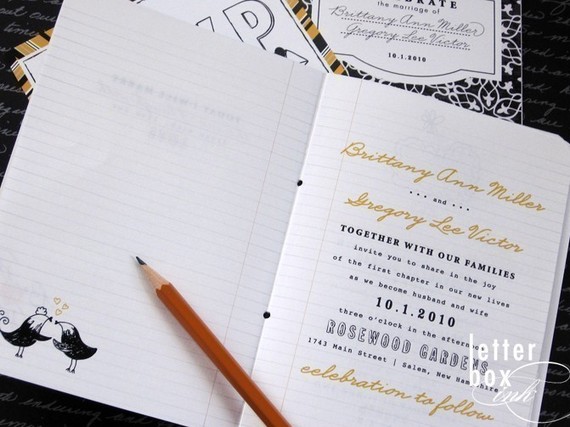 CELEBRATE
the marriage of
Brittany Ann Miller
Gregory Lee Victor
10.1.2010
Brittany Ann Miller
••• and •••
Gregory Lee Victor
TOGETHER WITH OUR FAMILIES
invite you to share in the joy
of the first chapter in our new lives
as we become husband and wife
10.1.2010
three o'clock in the afternoon
ROSEWOOD GARDENS
1743 Main Street | Salem, New Hampshire
celebration to follow
letter
box
ink